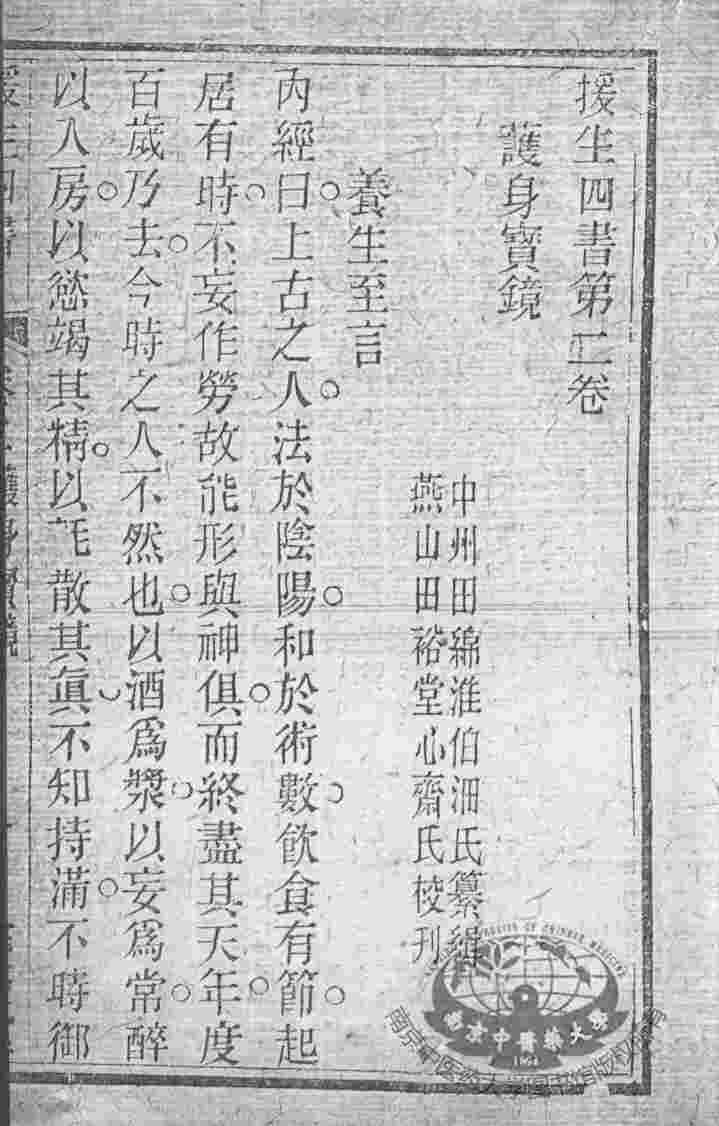 援生四書第二卷
護身寶鏡
中州田綿淮伯沺氏纂緝
燕山田裕堂心齋氏校刊
養生至言
內經曰上古之人法於陰陽和於術數飲食有節起
居有時不妄作勞故能形與神俱而終盡其天年度
百歲乃去今時之人不然也以酒爲漿以妄爲常醉
以入房以慾竭其精以耗散其眞不知持滿不時御
護身寶鏡
南京中醫藥大學
1954